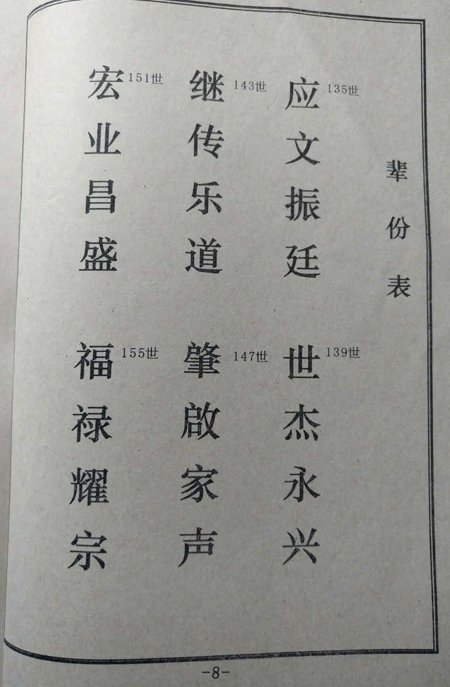 辈份表
应文振廷 135世
世杰永兴 139世
继传乐道 143世
肇啟家声 147世
宏业昌盛 151世
福禄耀宗 155世
-8-